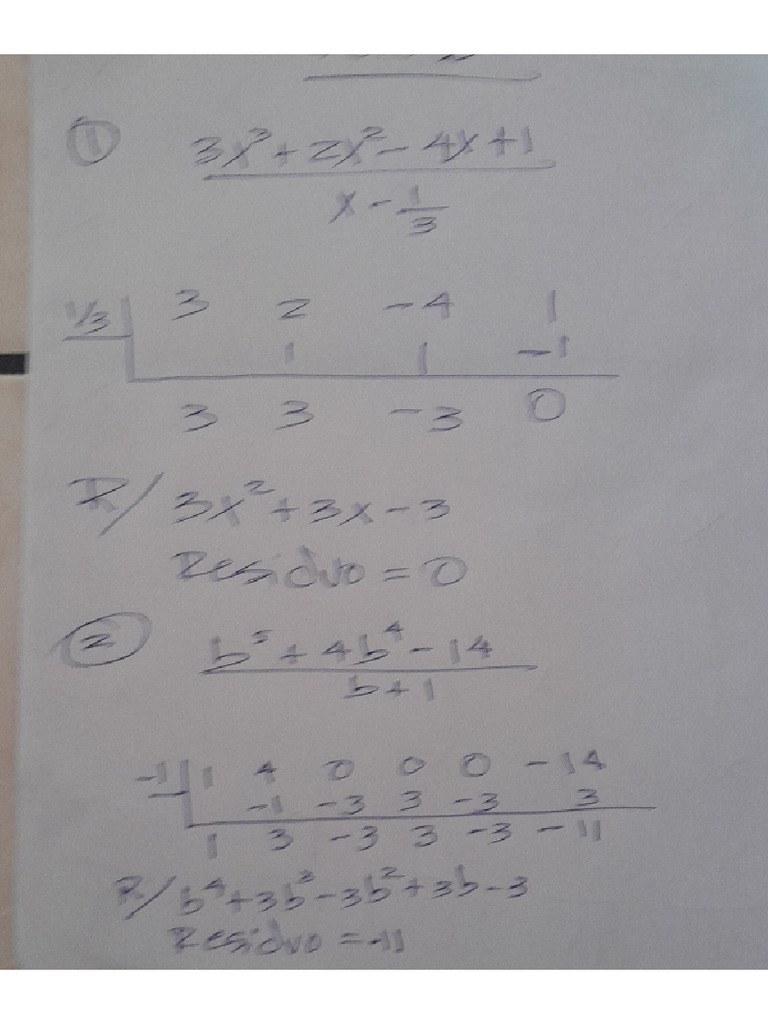 ①
3x³ + 2x² - 4x + 1
x - 1/3
1/3 | 3 2 -4 1
1 1 -1
3 3 -3 0
R/ 3x² + 3x - 3
Residuo = 0
②
b⁵ + 4b⁴ - 14
b + 1
-1 | 1 4 0 0 0 -14
-1 -3 3 -3 3
1 3 -3 3 -3 -11
R/ b⁴ + 3b³ - 3b² + 3b - 3
Residuo = -11